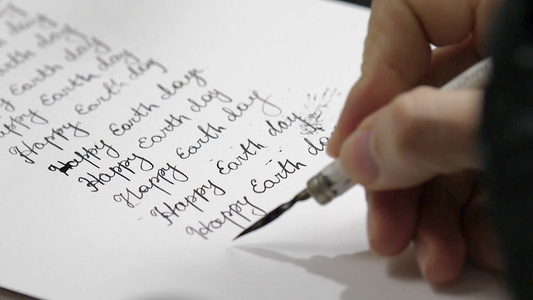 day
day
Earth day
Happy Earth day
Happy Earth day
Happy Earth day
Happy Earth day
Happy Earth day
Happy Earth day
Happy Earth day